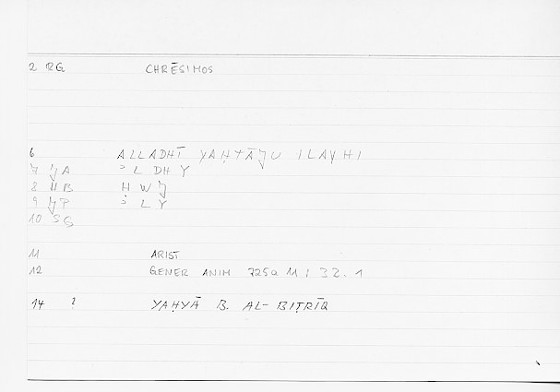 2 RG CHRĒSIMOS
6 ALLADHĪ YAḤTĀJU ILAYHI
7 JA ʾL DH Y
8 HB Ḥ W J
9 JP ʾL Y
10 SG
11 ARIST
12 GENER ANIM 725a 11 : 32. 1
14 ? YAḤYĀ B. AL-BIṬRĪQ